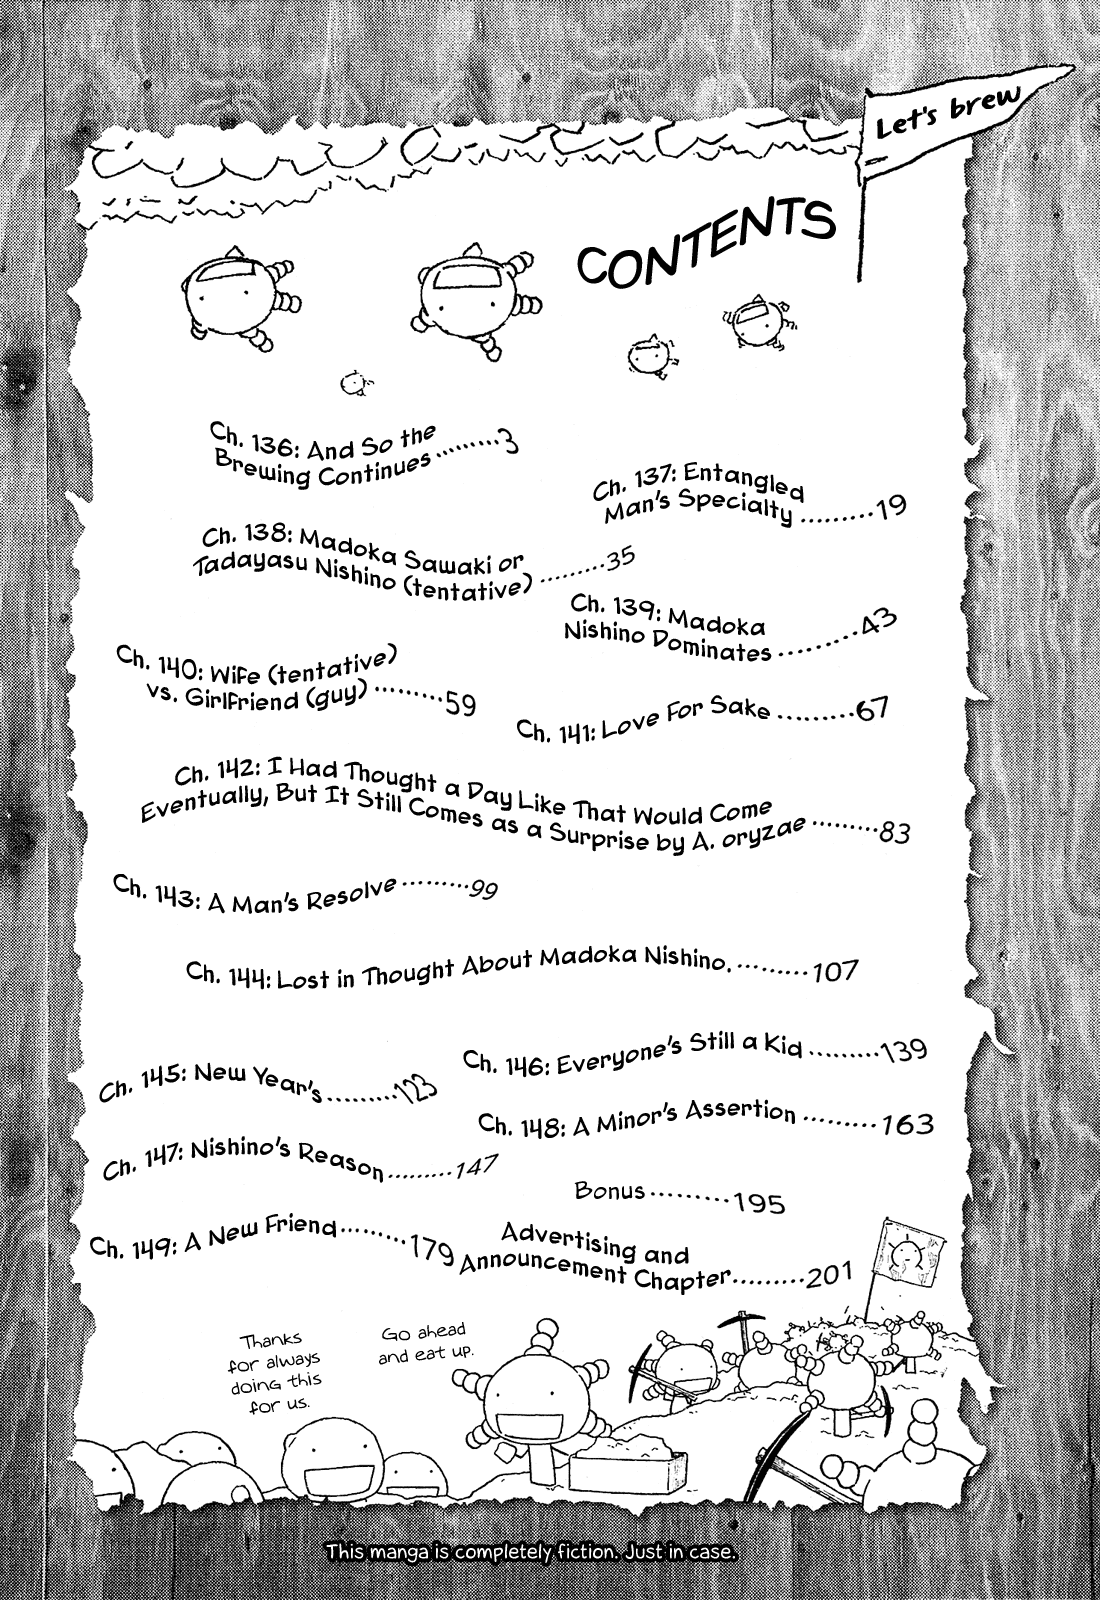 Let's brew
CONTENTS
Ch. 136: And So the
Brewing Continues·········3
Ch. 137: Entangled
Man's Specialty.........19
Ch. 138: Madoka Sawaki or
Tadayasu Nishino (tentative).........35
Ch. 139: Madoka
Nishino Dominates.........43
Ch. 140: Wife (tentative)
vs. Girlfriend (guy)·········59
Ch. 141: Love For Sake.........67
Ch. 142: I Had Thought a Day Like That Would Come
Eventually, But It Still Comes as a Surprise by A. oryzae·········83
Ch. 143: A Man's Resolve·········99
Ch. 144: Lost in Thought About Madoka Nishino.·········107
Ch. 145: New Year's.........123
Ch. 146: Everyone's Still a Kid.........139
Ch. 147: Nishino's Reason.........147
Ch. 148: A Minor's Assertion.........163
Ch. 149: A New Friend·········179
Bonus·········195
Advertising and
Announcement Chapter.........201
Thanks
for always
doing this
for us.
Go ahead
and eat up.
This manga is completely fiction. Just in case.